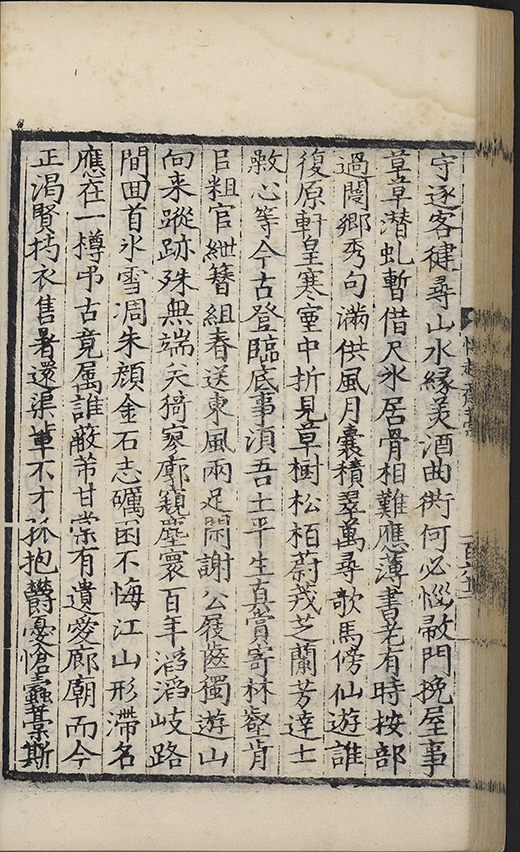 守逐客健尋山水緣美酒曲衖何必慍敲門挽屋事
草草潛虬暫借尺氷居骨相難應薄書老有時按部
過閿鄉秀句滿供風月囊積翠萬尋歌馬傍仙遊誰
復原軒皇寒室中折見章樹松栢蔚茂芝蘭芳達士
心等今古登臨底事湏吾土平生真賞寄林壑肯
官粗官紲簪組春送東風兩足閑謝公屐齒獨遊山
向来蹤跡殊無端天猗寥廓窺塵寰百年滔滔岐路
間田首氷雪凋朱顏金石志礪困不悔江山形滯名
應在一樽弔古竟属誰蔽芾甘棠有遺愛廊廟而今
正渴賢 衣售暑還渠輩不才孤抱欝憂愴蠹藁斯